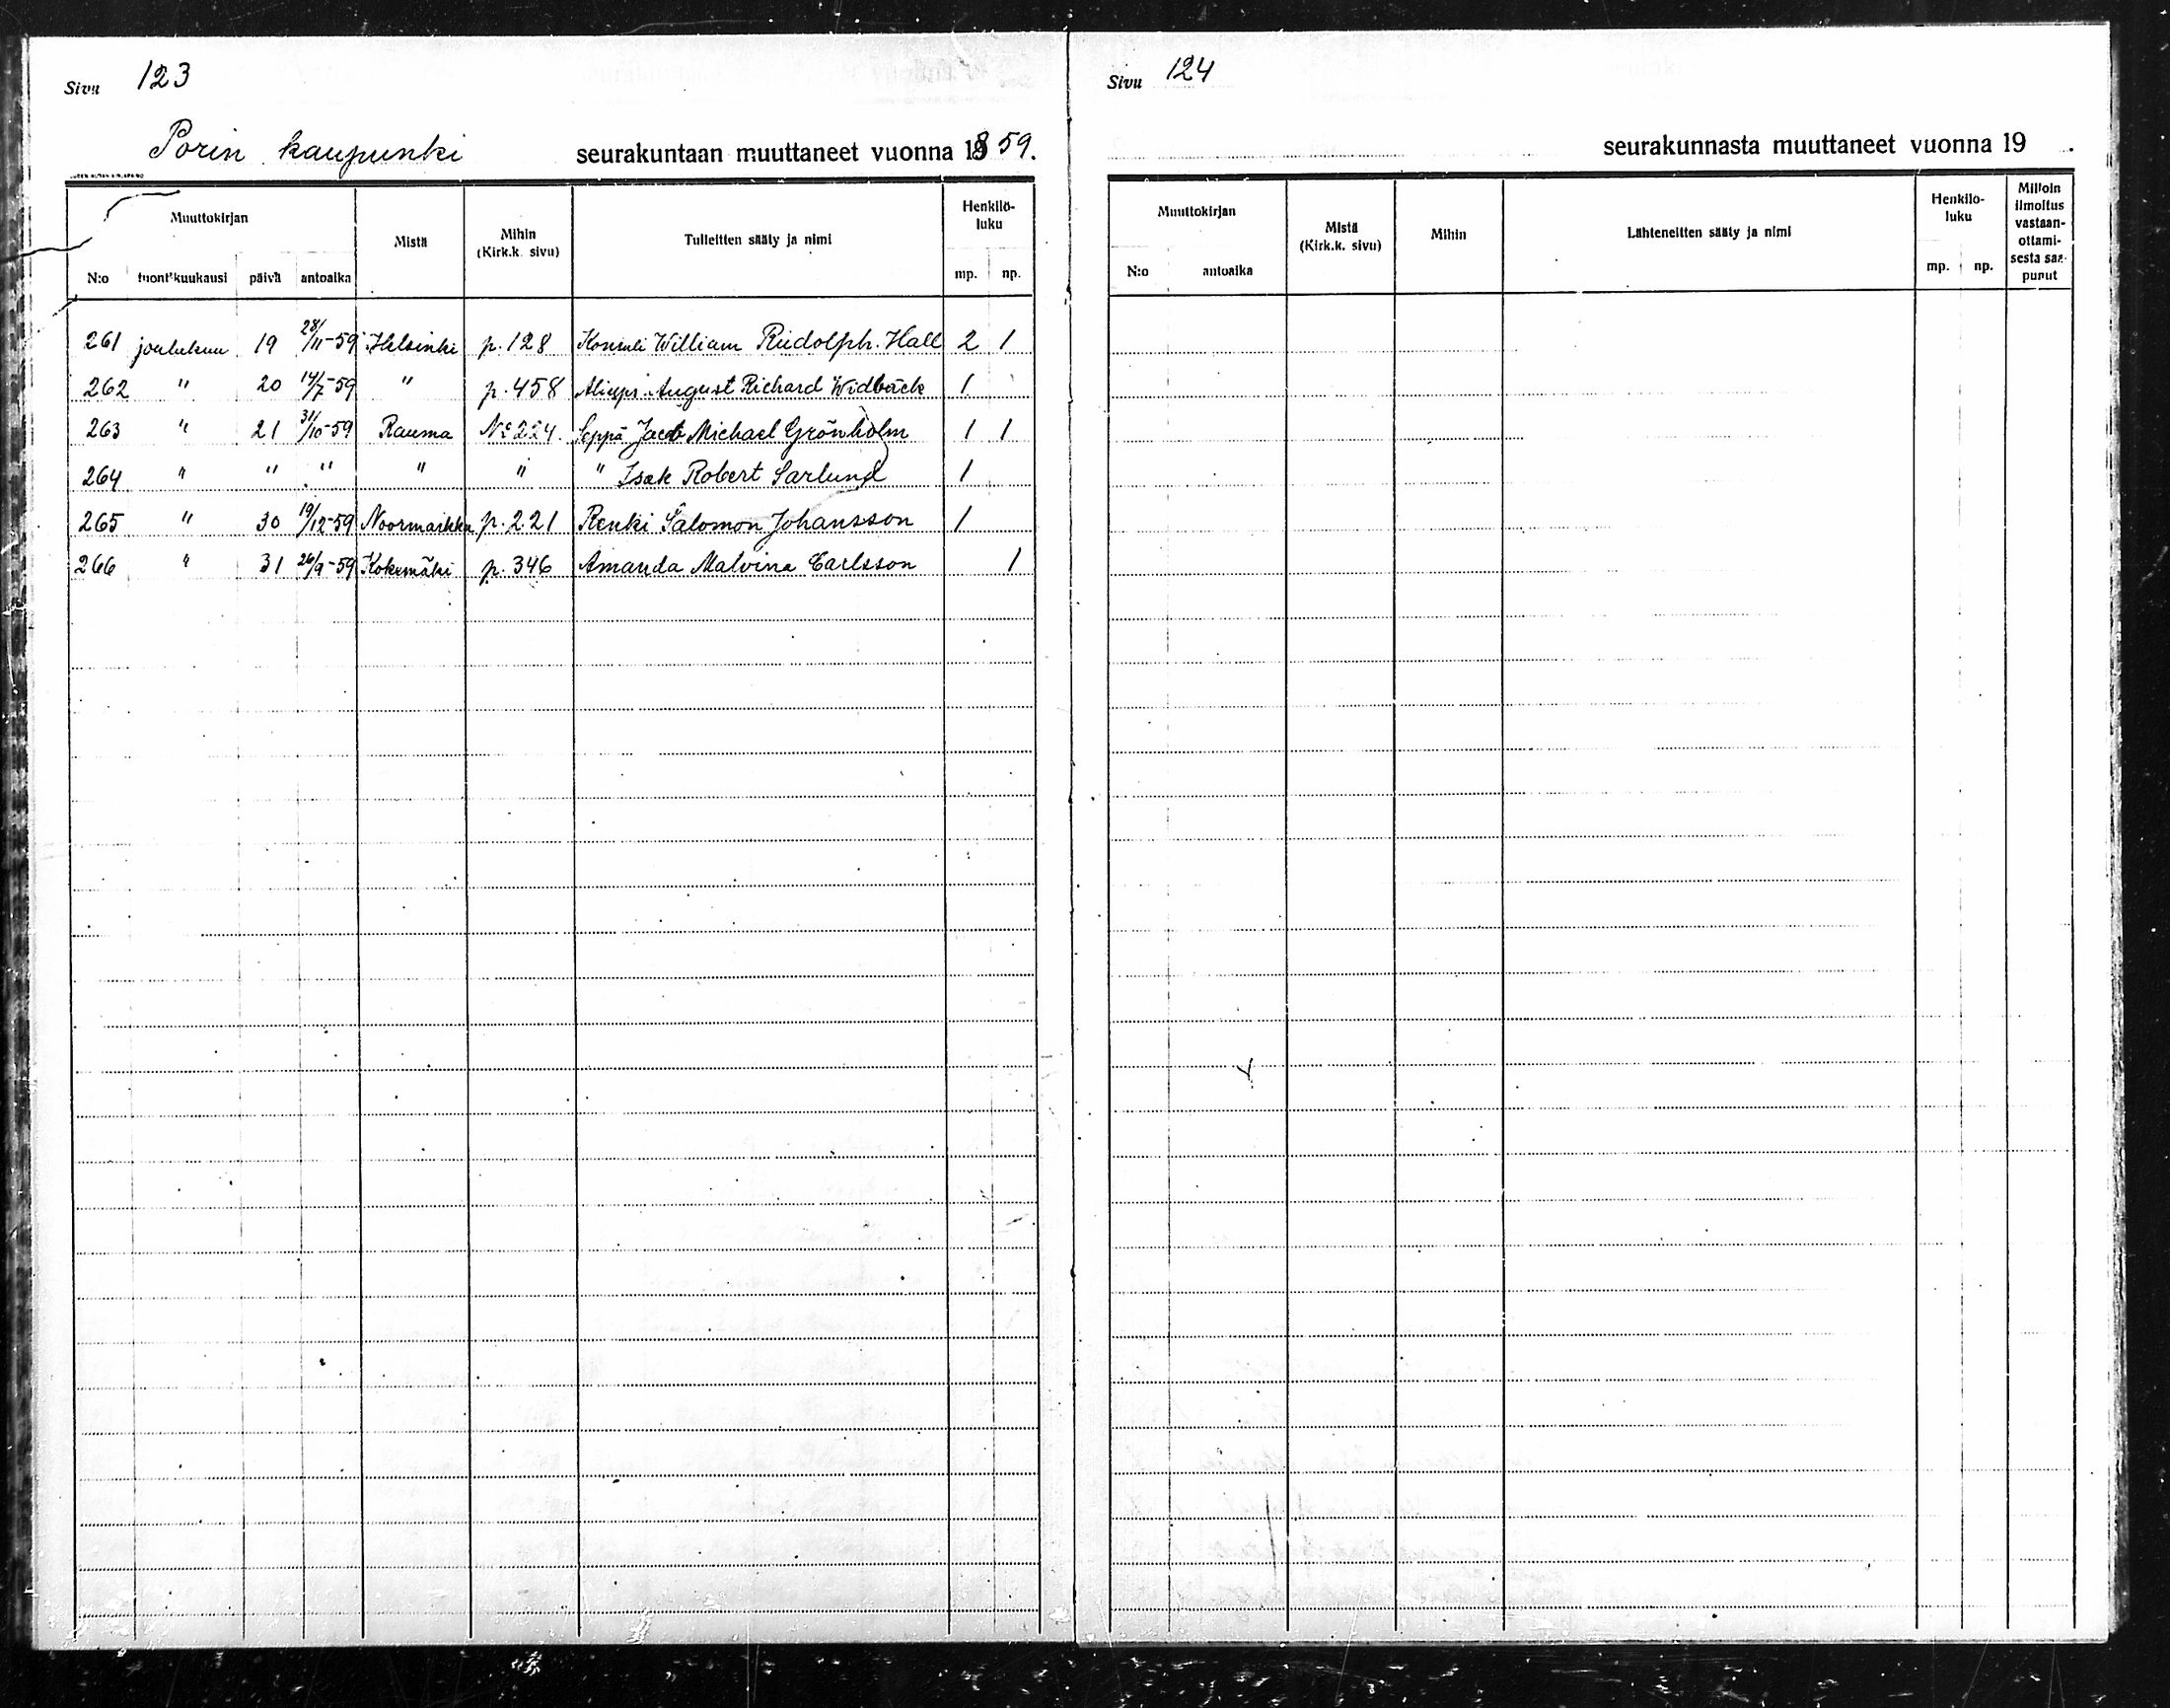 Sivu 123
Porin kaupunki seurakuntaan muuttaneet vuonna 1859.
Muuttokirjan Mistä Mihin (Kirk.k. sivu) Tulleitten sääty ja nimi Henkilöluku
N:o tuontikuukausi päivä antoaika mp. np.
261 joulukuu 19 28/11-59 Helsinki p. 128 Konsuli William Rudolph. Hall 2 1
262 " 20 14/7-59 " p. 458 August Richard Widbäck 1
263 " 21 31/10-59 Rauma No 224. Seppä Jacob Michael Grönholm 1 1
264 " " " " " " Isak Robert Sarlund 1
265 " 30 19/12-59 Noormarkku p. 221 Renki Salomon Johansson 1
266 " 31 26/9-59 Kokemäki p. 346 Amanda Malvina Carlsson 1
Sivu 124
seurakunnasta muuttaneet vuonna 19 .
Muuttokirjan Mistä (Kirk.k. sivu) Mihin Lähteneitten sääty ja nimi Henkilöluku Milloin ilmoitus vastaanottamisesta saapunut
N:o antoaika mp. np.